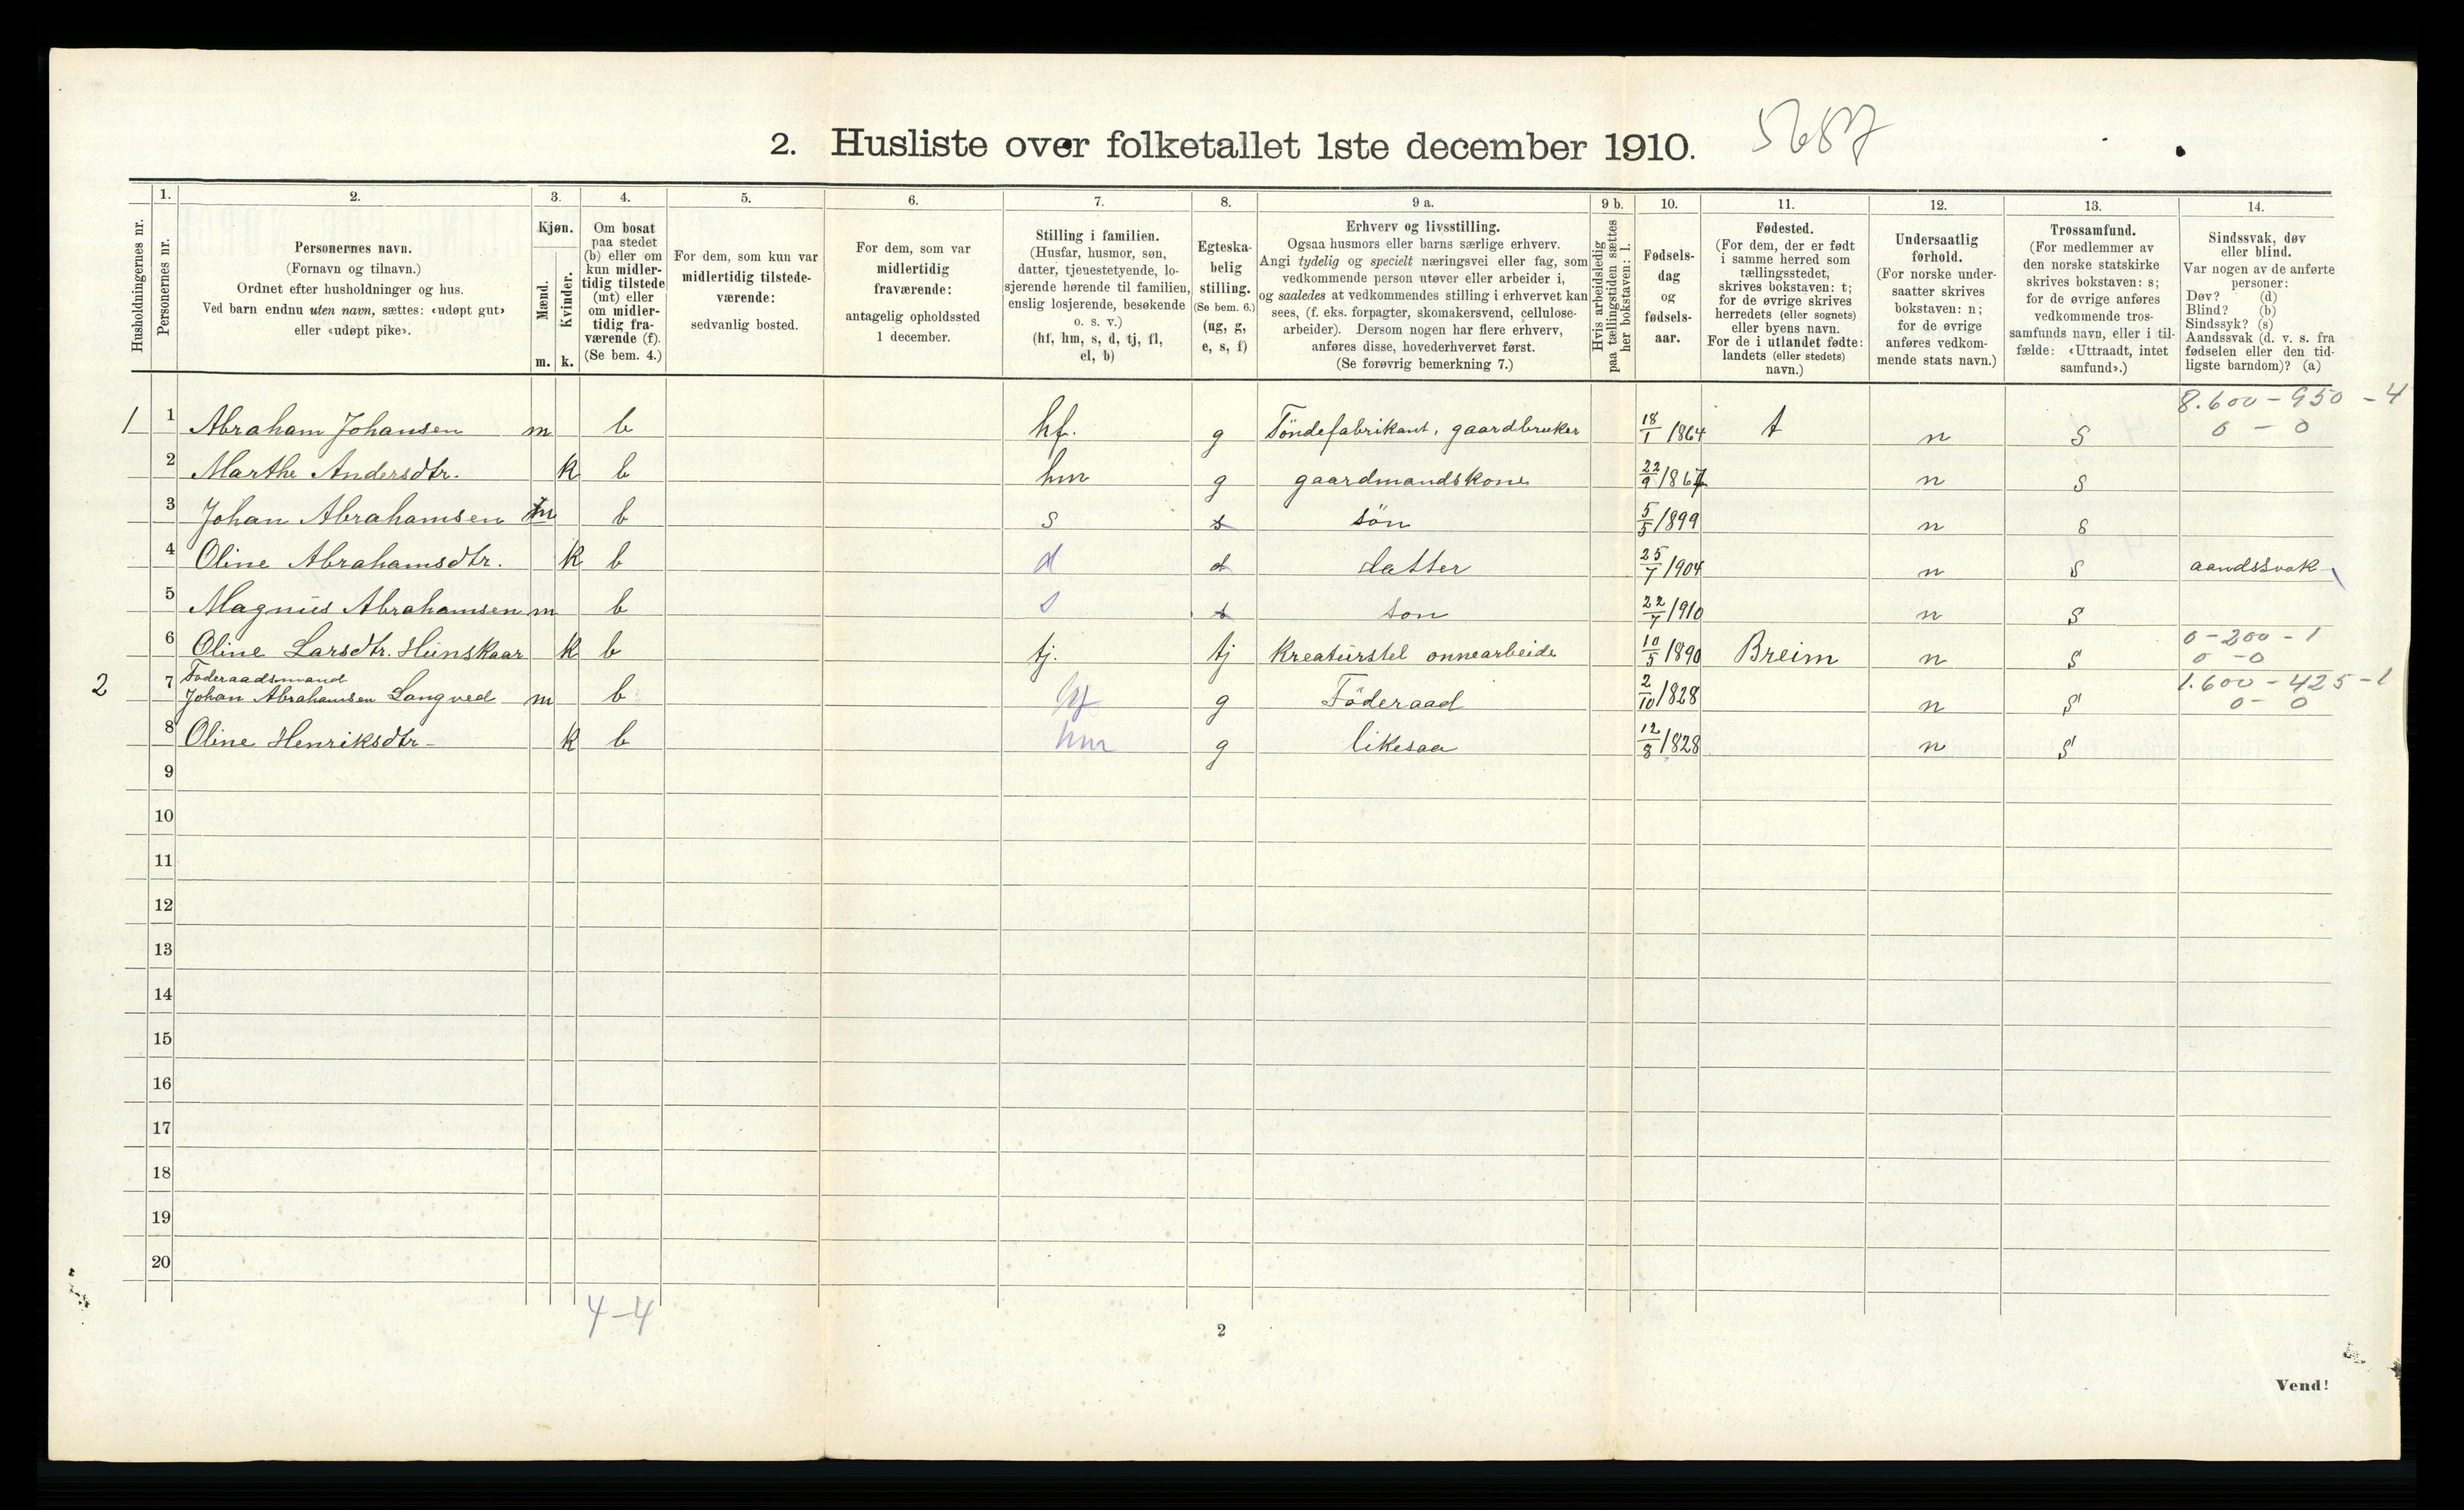 2. Husliste over folketallet 1ste december 1910. 5687
Husholdningernes nr.
1.
Personernes nr.
2.
Personernes navn.
(Fornavn og tilnavn.)
Ordnet efter husholdninger og hus.
Ved barn endnu uten navn, sættes: «udøpt gut»
eller «udøpt pike».
3.
Kjøn.
Mænd.
Kvinder.
m. k.
4.
Om bosat
paa stedet
(b) eller om
kun midler-
tidig tilstede
(mt) eller
om midler-
tidig fra-
værende (f).
(Se bem. 4.)
5.
For dem, som kun var
midlertidig tilstede-
værende:
sedvanlig bosted.
6.
For dem, som var
midlertidig
fraværende:
antagelig opholdssted
1 december.
7.
Stilling i familien.
(Husfar, husmor, søn,
datter, tjenestetyende, lo-
sjerende hørende til familien,
enslig losjerende, besøkende
o. s. v.)
(hf, hm, s, d, tj, fl,
el, b)
8.
Egteska-
belig
stilling.
(Se bem. 6.)
(ug, g,
e, s, f)
9 a.
Erhverv og livsstilling.
Ogsaa husmors eller barns særlige erhverv.
Angi tydelig og specielt næringsvei eller fag, som
vedkommende person utøver eller arbeider i,
og saaledes at vedkommendes stilling i erhvervet kan
sees, (f. eks. forpagter, skomakersvend, cellulose-
arbeider). Dersom nogen har flere erhverv,
anføres disse, hovederhvervet først.
(Se forøvrig bemerkning 7.)
9 b.
Hvis arbeidsledig
paa tællingstiden sættes
her bokstaven: l.
10.
Fødsels-
dag
og
fødsels-
aar.
11.
Fødested.
(For dem, der er født
i samme herred som
tællingsstedet,
skrives bokstaven: t;
for de øvrige skrives
herredets (eller sognets)
eller byens navn.
For de i utlandet fødte:
landets (eller stedets)
navn.)
12.
Undersaatlig
forhold.
(For norske under-
saatter skrives
bokstaven: n;
for de øvrige
anføres vedkom-
mende stats navn.)
13.
Trossamfund.
(For medlemmer av
den norske statskirke
skrives bokstaven: s;
for de øvrige anføres
vedkommende tros-
samfunds navn, eller i til-
fælde: «Uttraadt, intet
samfund».)
14.
Sindssvak, døv
eller blind.
Var nogen av de anførte
personer:
Døv? (d)
Blind? (b)
Sindssyk? (s)
Aandssvak (d. v. s. fra
fødselen eller den tid-
ligste barndom)? (a)
8.600 - 950 - 4
1 1 Abraham Johansen m b hf. g Töndefabrikant, gaardbruker 18/1 1864 t n s 0 - 0
2 Marthe Andersdtr. k b hm g gaardmandskone 22/9 1867 n s
3 Johan Abrahamsen m b s s sön 5/5 1899 n s
4 Oline Abrahamsdtr. k b d d datter 25/7 1904 n s aandssvak
5 Magnus Abrahamsen m b s s son 22/7 1910 n s
0 - 200 - 1
6 Oline Larsdtr. Hunskaar k b tj. tj Kreaturstel onnearbeide 10/5 1890 Breim n s 0 - 0
Föderaadsmand 1.600 - 425 - 1
2 7 Johan Abrahamsen Langved m b hf g Föderaad 2/10 1828 n s 0 - 0
8 Oline Henriksdtr - k b hm g likesaa 12/8 1828 n s
9
10
11
12
13
14
15
16
17
18
19
20
4 - 4
2
Vend!